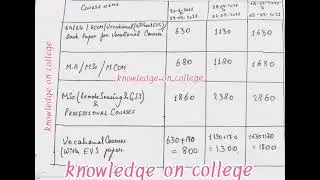 COURSE NAME
BA/BSc/BCOM/Vocational(without EVS)
Back Paper for Vocational Course
630 1130 1630
M.A/MSc/MCOM
680 1180 1680
knowledge on college
MSc (Remote Sensing & GIS)
&
PROFESSIONAL COURSES
1860 2380 2860
Vocational Courses
(With EVS paper.
630+170
= 800
1130+170
= 1300
1630+170
= 1800
knowledge on college
knowledge on college